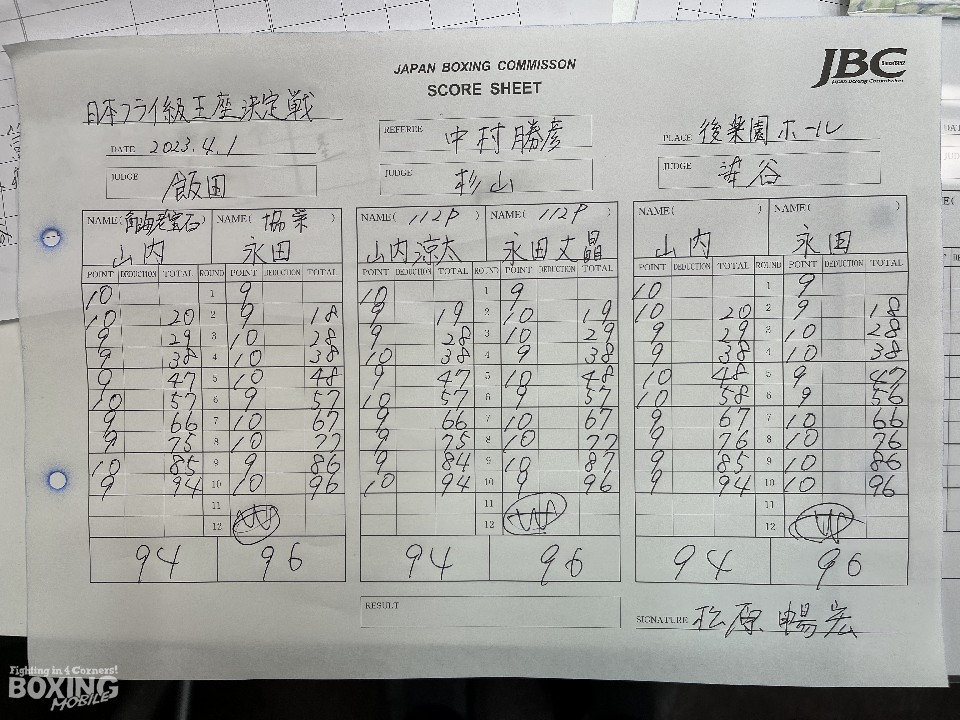 JAPAN BOXING COMMISSON
SCORE SHEET
JBC
Since 1952
Japan Boxing Commission
日本フライ級王座決定戦
DATE 2023.4.1
REFEREE 中村勝彦
PLACE 後楽園ホール
JUDGE 飯田
JUDGE 杉山
JUDGE 染谷
NAME(角海老宝石) NAME( 協栄 ) NAME( 112P ) NAME( 112P ) NAME( ) NAME( )
山内 永田 山内涼太 永田丈晶 山内 永田
POINT DEDUCTION TOTAL ROUND POINT DEDUCTION TOTAL POINT DEDUCTION TOTAL ROUND POINT DEDUCTION TOTAL POINT DEDUCTION TOTAL ROUND POINT DEDUCTION TOTAL
10 1 9 10 1 9 10 1 9
10 20 2 9 18 9 19 2 10 19 10 20 2 9 18
9 29 3 10 28 9 28 3 10 29 9 29 3 10 28
9 38 4 10 38 10 38 4 9 38 9 38 4 10 38
9 47 5 10 48 9 47 5 10 48 10 48 5 9 47
10 57 6 9 57 10 57 6 9 57 10 58 6 9 56
9 66 7 10 67 9 66 7 10 67 9 67 7 10 66
9 75 8 10 77 9 75 8 10 77 9 76 8 10 76
10 85 9 9 86 9 84 9 10 87 9 85 9 10 86
9 94 10 10 96 10 94 10 9 96 9 94 10 10 96
11 11 11
12 W 12 W 12 W
94 96 94 96 94 96
RESULT
SIGNATURE 松原暢宏
Fighting in 4 Corners!
BOXING
MOBILE